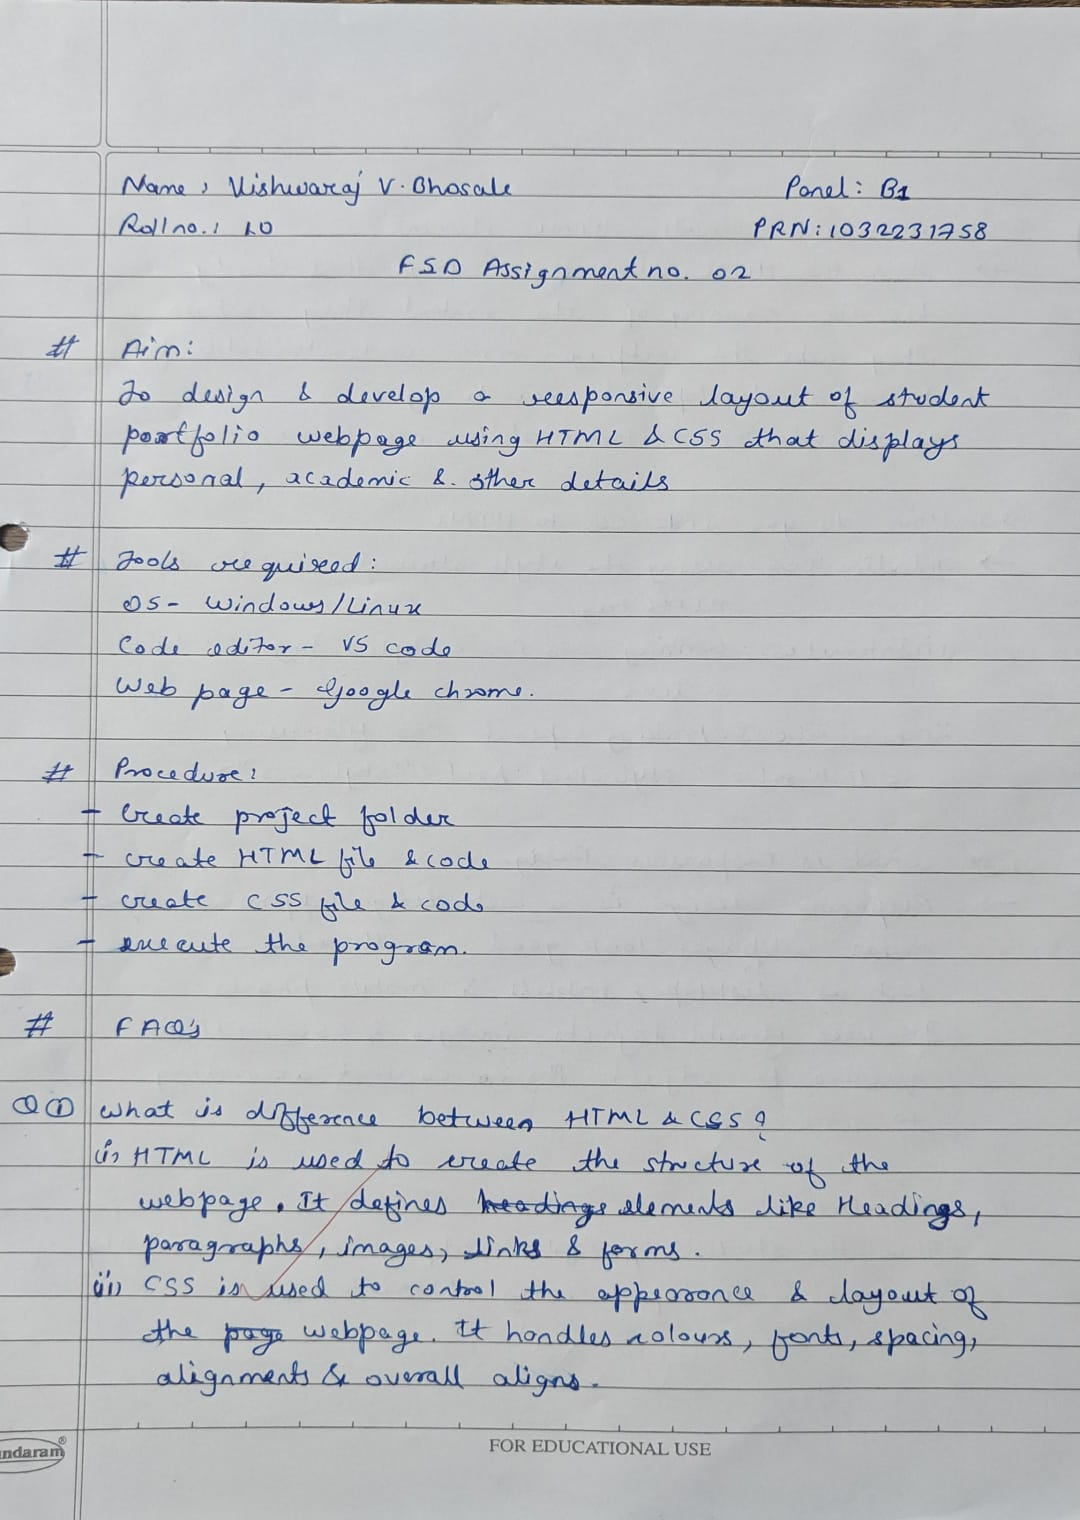 Name : Vishwaraj V. Bhosale Panel : B1
Roll no. : 10 PRN : 1032231758
FSD Assignment no. 02
# Aim :
To design & develop a responsive layout of student
portfolio webpage using HTML & CSS that displays
personal, academic & other details
# Tools required :
OS - Windows/Linux
Code editor - VS code
Web page - Google chrome.
# Procedure :
- Create project folder
- create HTML file & code
- create CSS file & code
- execute the program.
# FAQ's
Q① What is difference between HTML & CSS ?
i) HTML is used to create the structure of the
webpage. It defines headings elements like Headings,
paragraphs, images, links & forms.
ii) CSS is used to control the appearance & layout of
the page webpage. It handles colours, fonts, spacing,
alignments & overall aligns.
ndaram®
FOR EDUCATIONAL USE